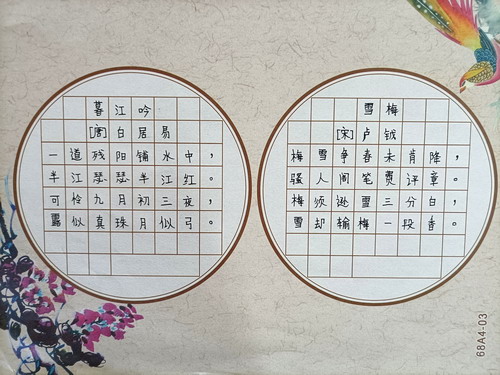 暮江吟
[唐]白居易
一道残阳铺水中，
半江瑟瑟半江红。
可怜九月初三夜，
露似真珠月似弓。
雪梅
[宋]卢钺
梅雪争春未肯降，
骚人阁笔费评章。
梅须逊雪三分白，
雪却输梅一段香。
68A4-03